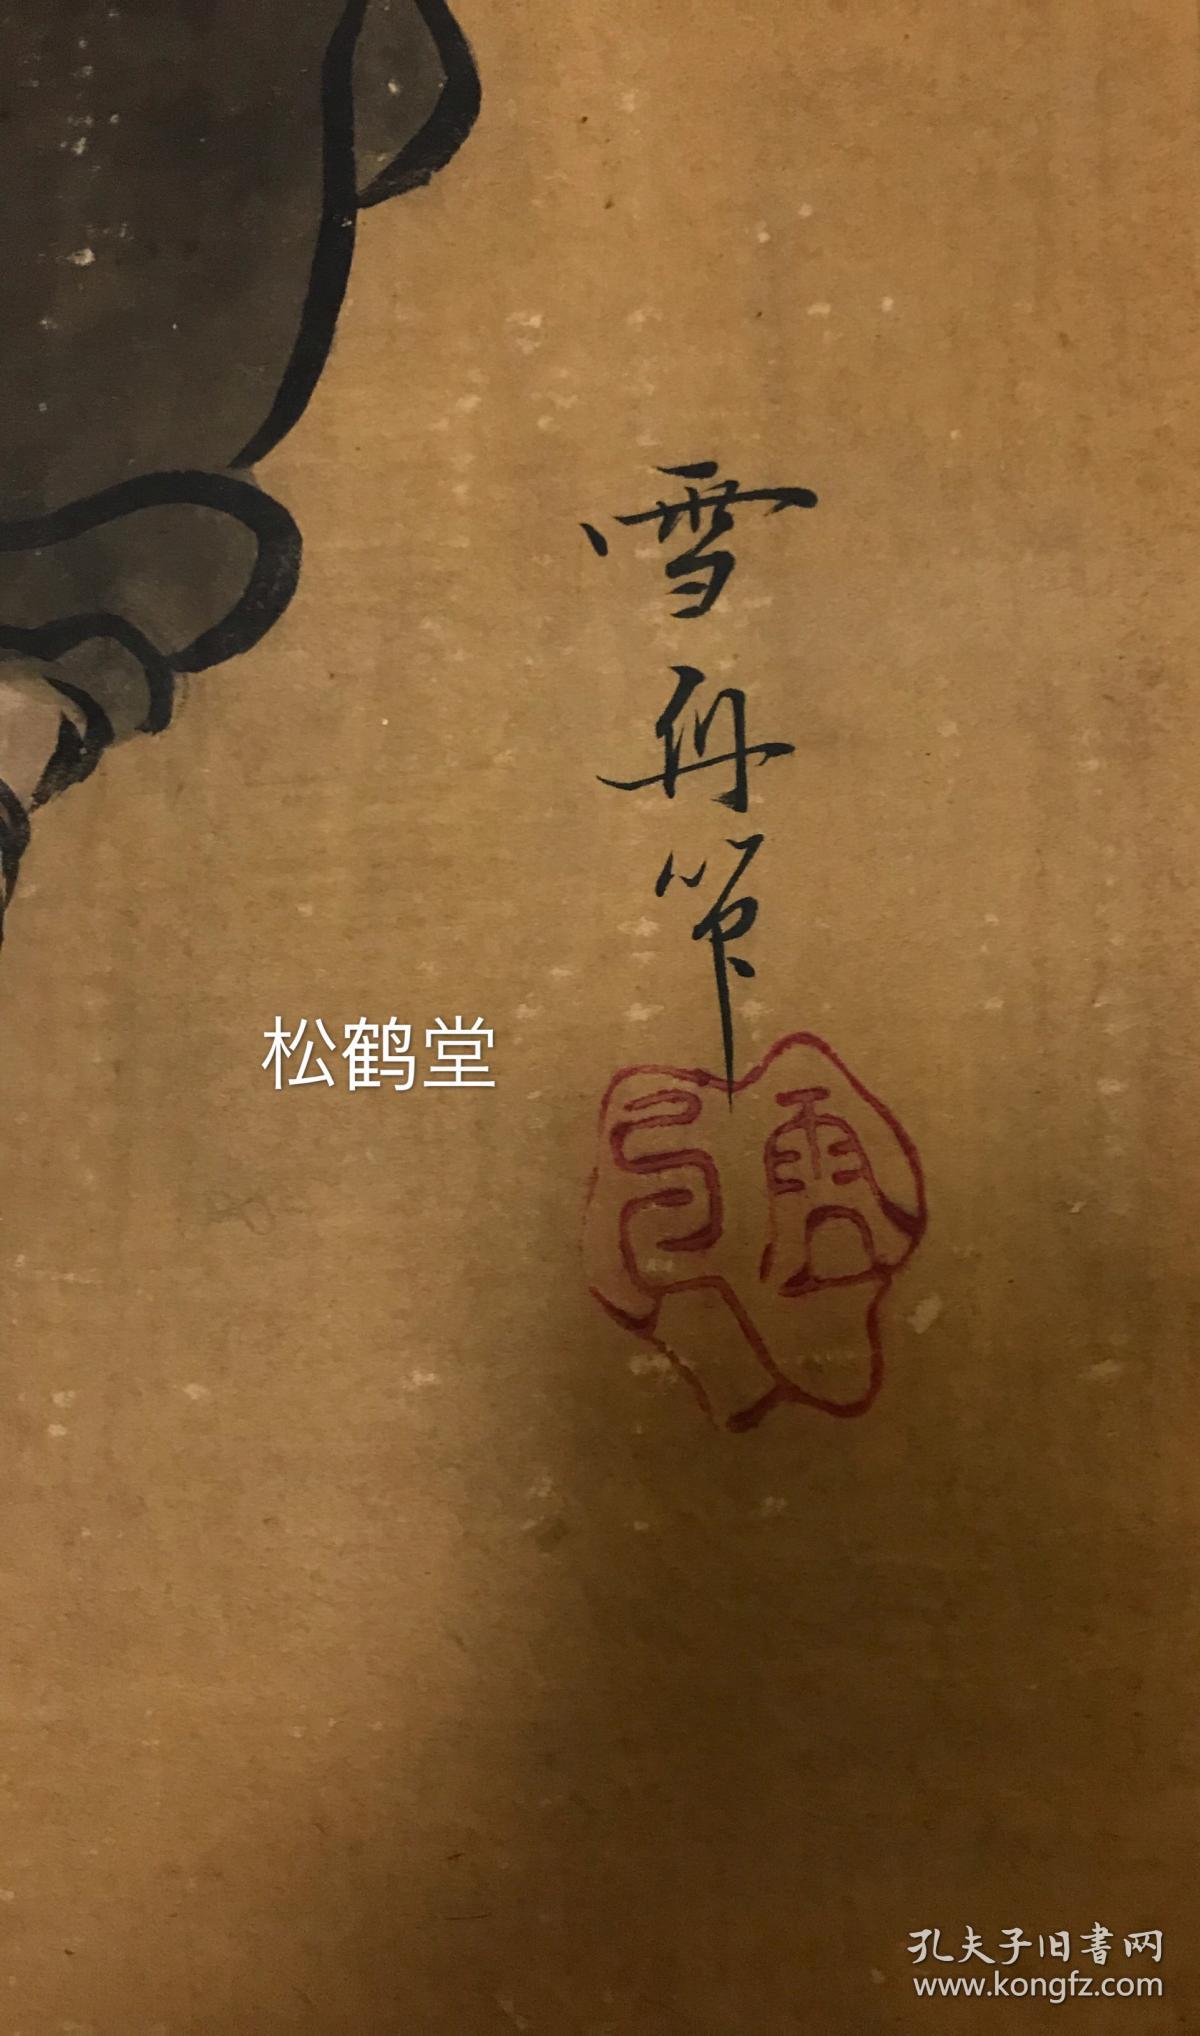 雪舟筆
松鹤堂
孔夫子旧書网
www.kongfz.com